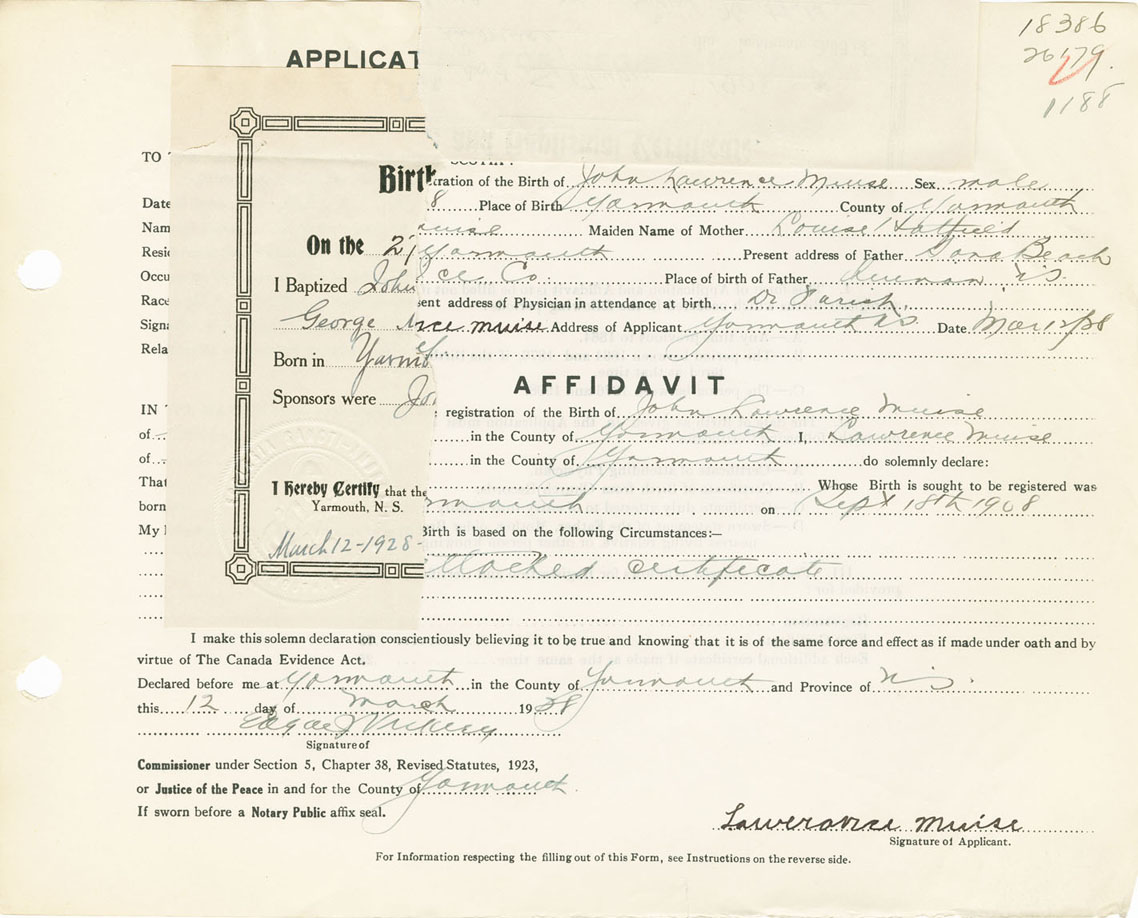 18386
26179.
1188
APPLICAT
TO
Birth
ration of the Birth of John Lawrence Muise Sex male
Date 8 Place of Birth Yarmouth County of Yarmouth
Nam uise Maiden Name of Mother Louise Hatfield
On the 2
Resid Yarmouth Present address of Father Beach
Occu ce Co. Place of birth of Father N.S.
I Baptized John
Race sent address of Physician in attendance at birth Dr Farish
Signa George nce muise Address of Applicant Yarmouth NS Date Mar 12/38
Rela
Born in Yarm
AFFIDAVIT
Sponsors were Jo
IN registration of the Birth of John Lawrence Muise
of in the County of Yarmouth I, Lawrence Muise
of in the County of Yarmouth do solemnly declare:
That Whose Birth is sought to be registered was
I Hereby Certify that the
born rmouth on Sept 18th 1908
Yarmouth, N. S.
My Birth is based on the following Circumstances:—
March 12-1928-
ttached certificate
I make this solemn declaration conscientiously believing it to be true and knowing that it is of the same force and effect as if made under oath and by
virtue of The Canada Evidence Act.
Declared before me at Yarmouth in the County of Yarmouth and Province of N.S.
this 12 day of March 1938
Edgar J Vickery
Signature of
Commissioner under Section 5, Chapter 38, Revised Statutes, 1923,
or Justice of the Peace in and for the County of Yarmouth.
If sworn before a Notary Public affix seal.
Muise
Signature of Applicant.
For Information respecting the filling out of this Form, see Instructions on the reverse side.